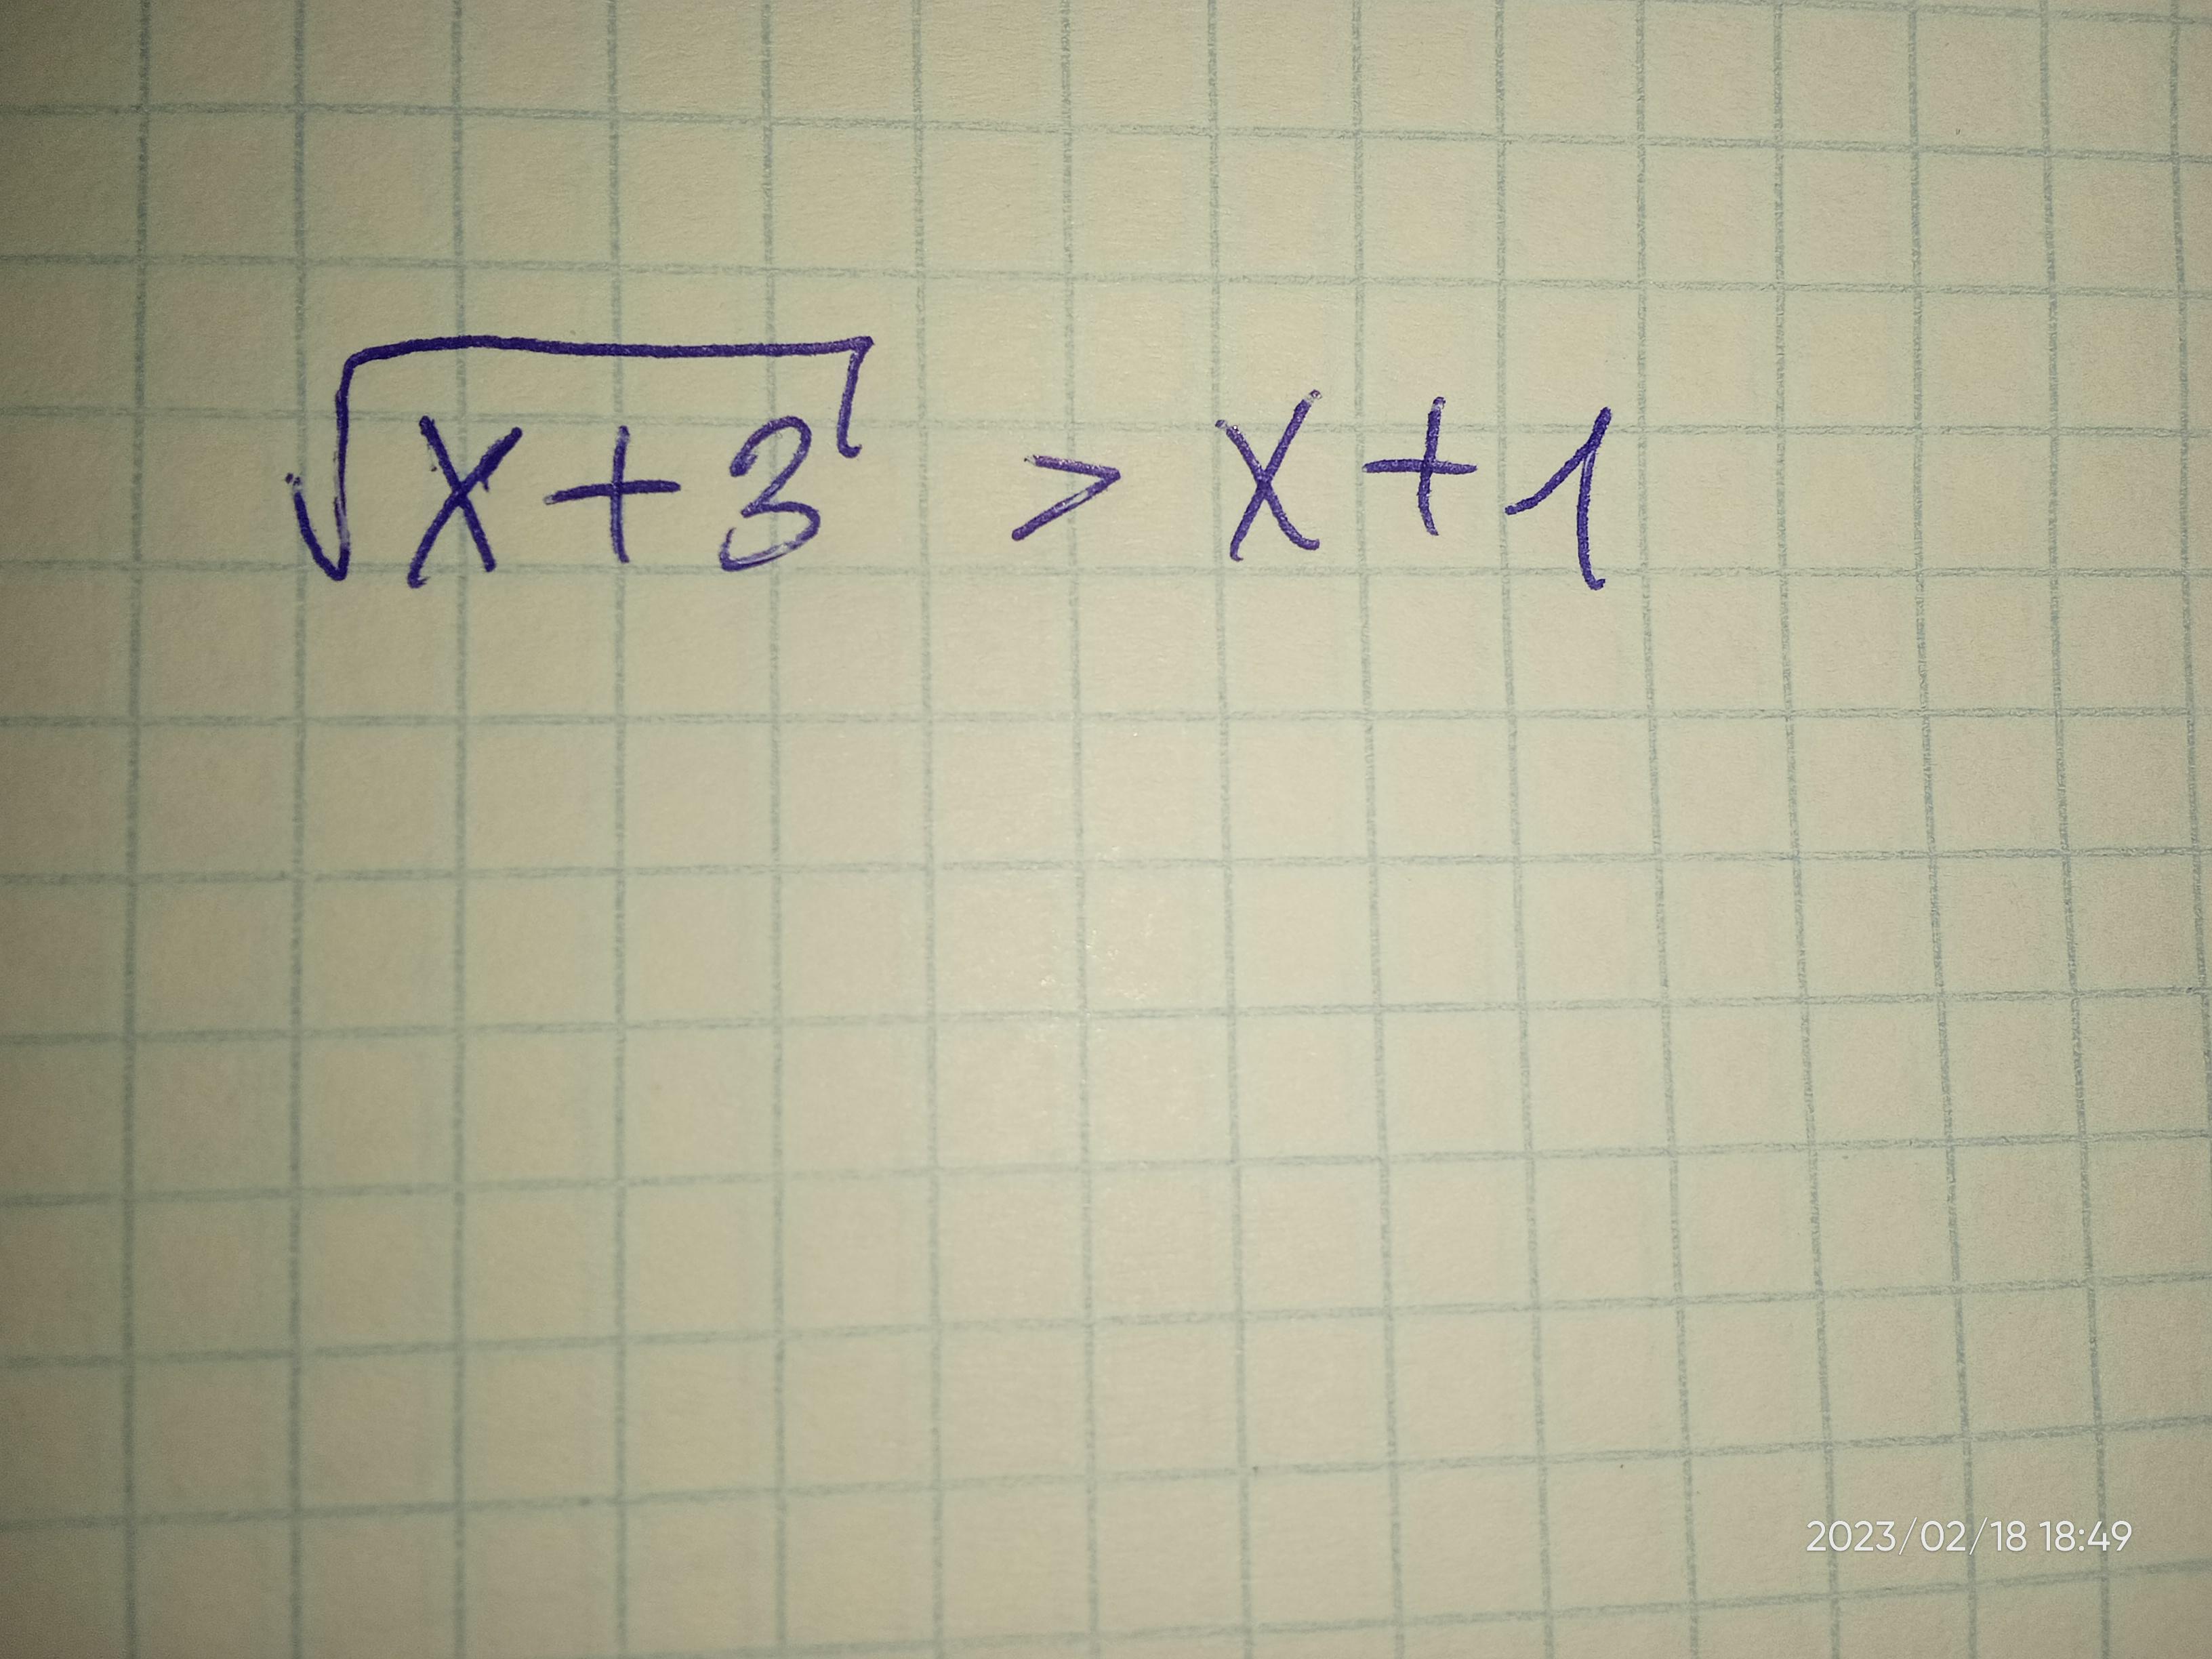 √(x+3) > x+1
2023/02/18 18:49